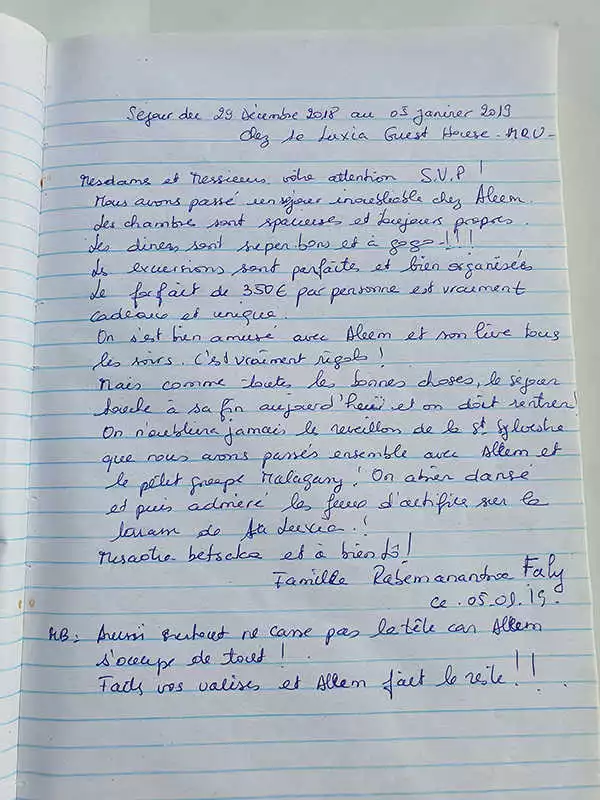 Séjour du 29 Décembre 2018 au 05 janvier 2019
chez le Luxia Guest House - MRU -
Mesdams et Messieurs votre attention S.V.P !
Nous avons passé un séjour inoubliable chez Aleem.
Les chambre sont spacieuses et toujours propres.
Les diners sont super bons et à gogo - ! ! !
Les excursions sont parfaites et bien organisées
Le forfait de 350€ par personne est vraiment
cadeaux et unique.
On s'est bien amusé avec Aleem et son live tous
les soirs. C'est vraiment rigolo !
Mais comme toutes les bonnes choses, le séjour
touche à sa fin aujourd'hui et on doit rentrer !
On n'oubliera jamais le reveillon de la St Sylvestre
que nous avons passés ensemble avec Alem et
le petit groupe Malagasy ! On a bien dansé
et puis admiré les feux d'artifice sur la
de la Luxia. !
Misaotra betsaka et à bientô !
Famille Rabemanandroa Faly
ce . 05.01.19.
NB : surtout ne casse pas la tête car Allem
s'occupe de tout !
Faits vos valises et Allem fait le reste ! !